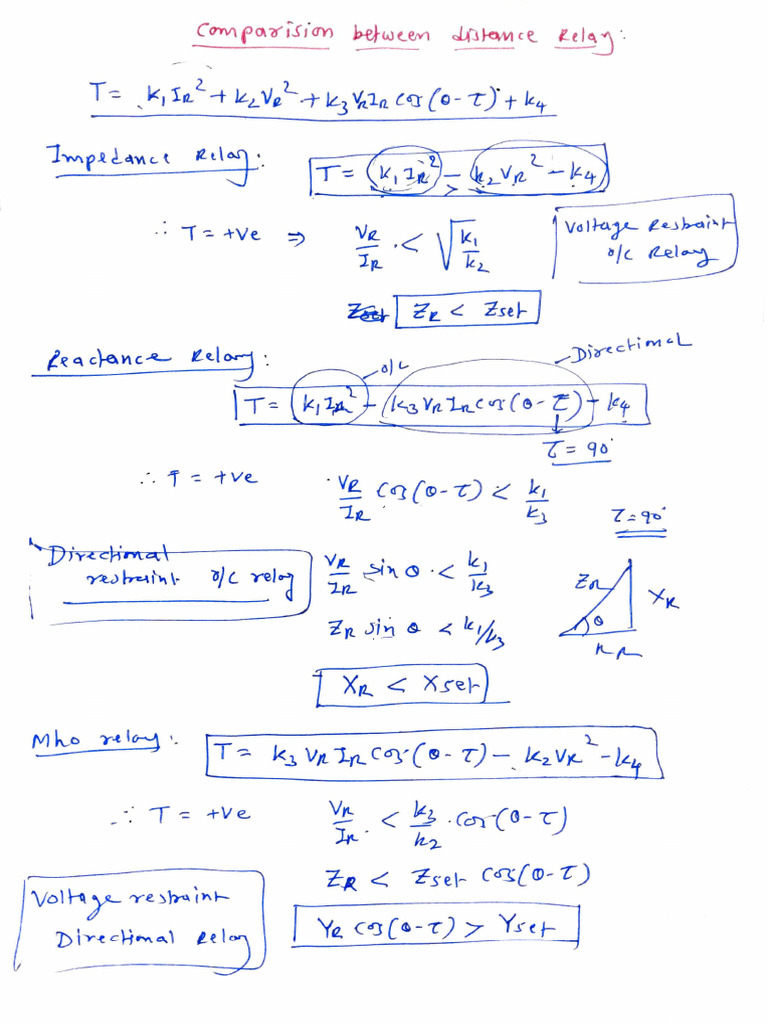 Comparision between distance Relay:
T = k₁I_R² + k₂V_R² + k₃V_RI_R cos(θ-τ) + k₄
Impedance Relay:
T = k₁I_R² - k₂V_R² - k₄
>
∴ T = +Ve ⇒ V_R/I_R < √(k₁/k₂)
Voltage Restraint
o/c Relay
Z_R < Zset
Reactance Relay:
o/c
Directional
T = k₁I_R² - k₃V_RI_R cos(θ-τ) - k₄
τ = 90°
∴ T = +ve V_R/I_R cos(θ-τ) < k₁/k₃
τ = 90°
Directional
restraint o/c relay
V_R/I_R sin θ < k₁/k₃
Z_R sin θ < k₁/k₃
Z_R
X_R
θ
R_R
X_R < Xset
Mho relay:
T = k₃V_RI_R cos(θ-τ) - k₂V_R² - k₄
∴ T = +ve V_R/I_R < k₃/k₂ · cos(θ-τ)
Z_R < Zset cos(θ-τ)
Voltage restraint
Directional Relay
Y_R cos(θ-τ) > Yset